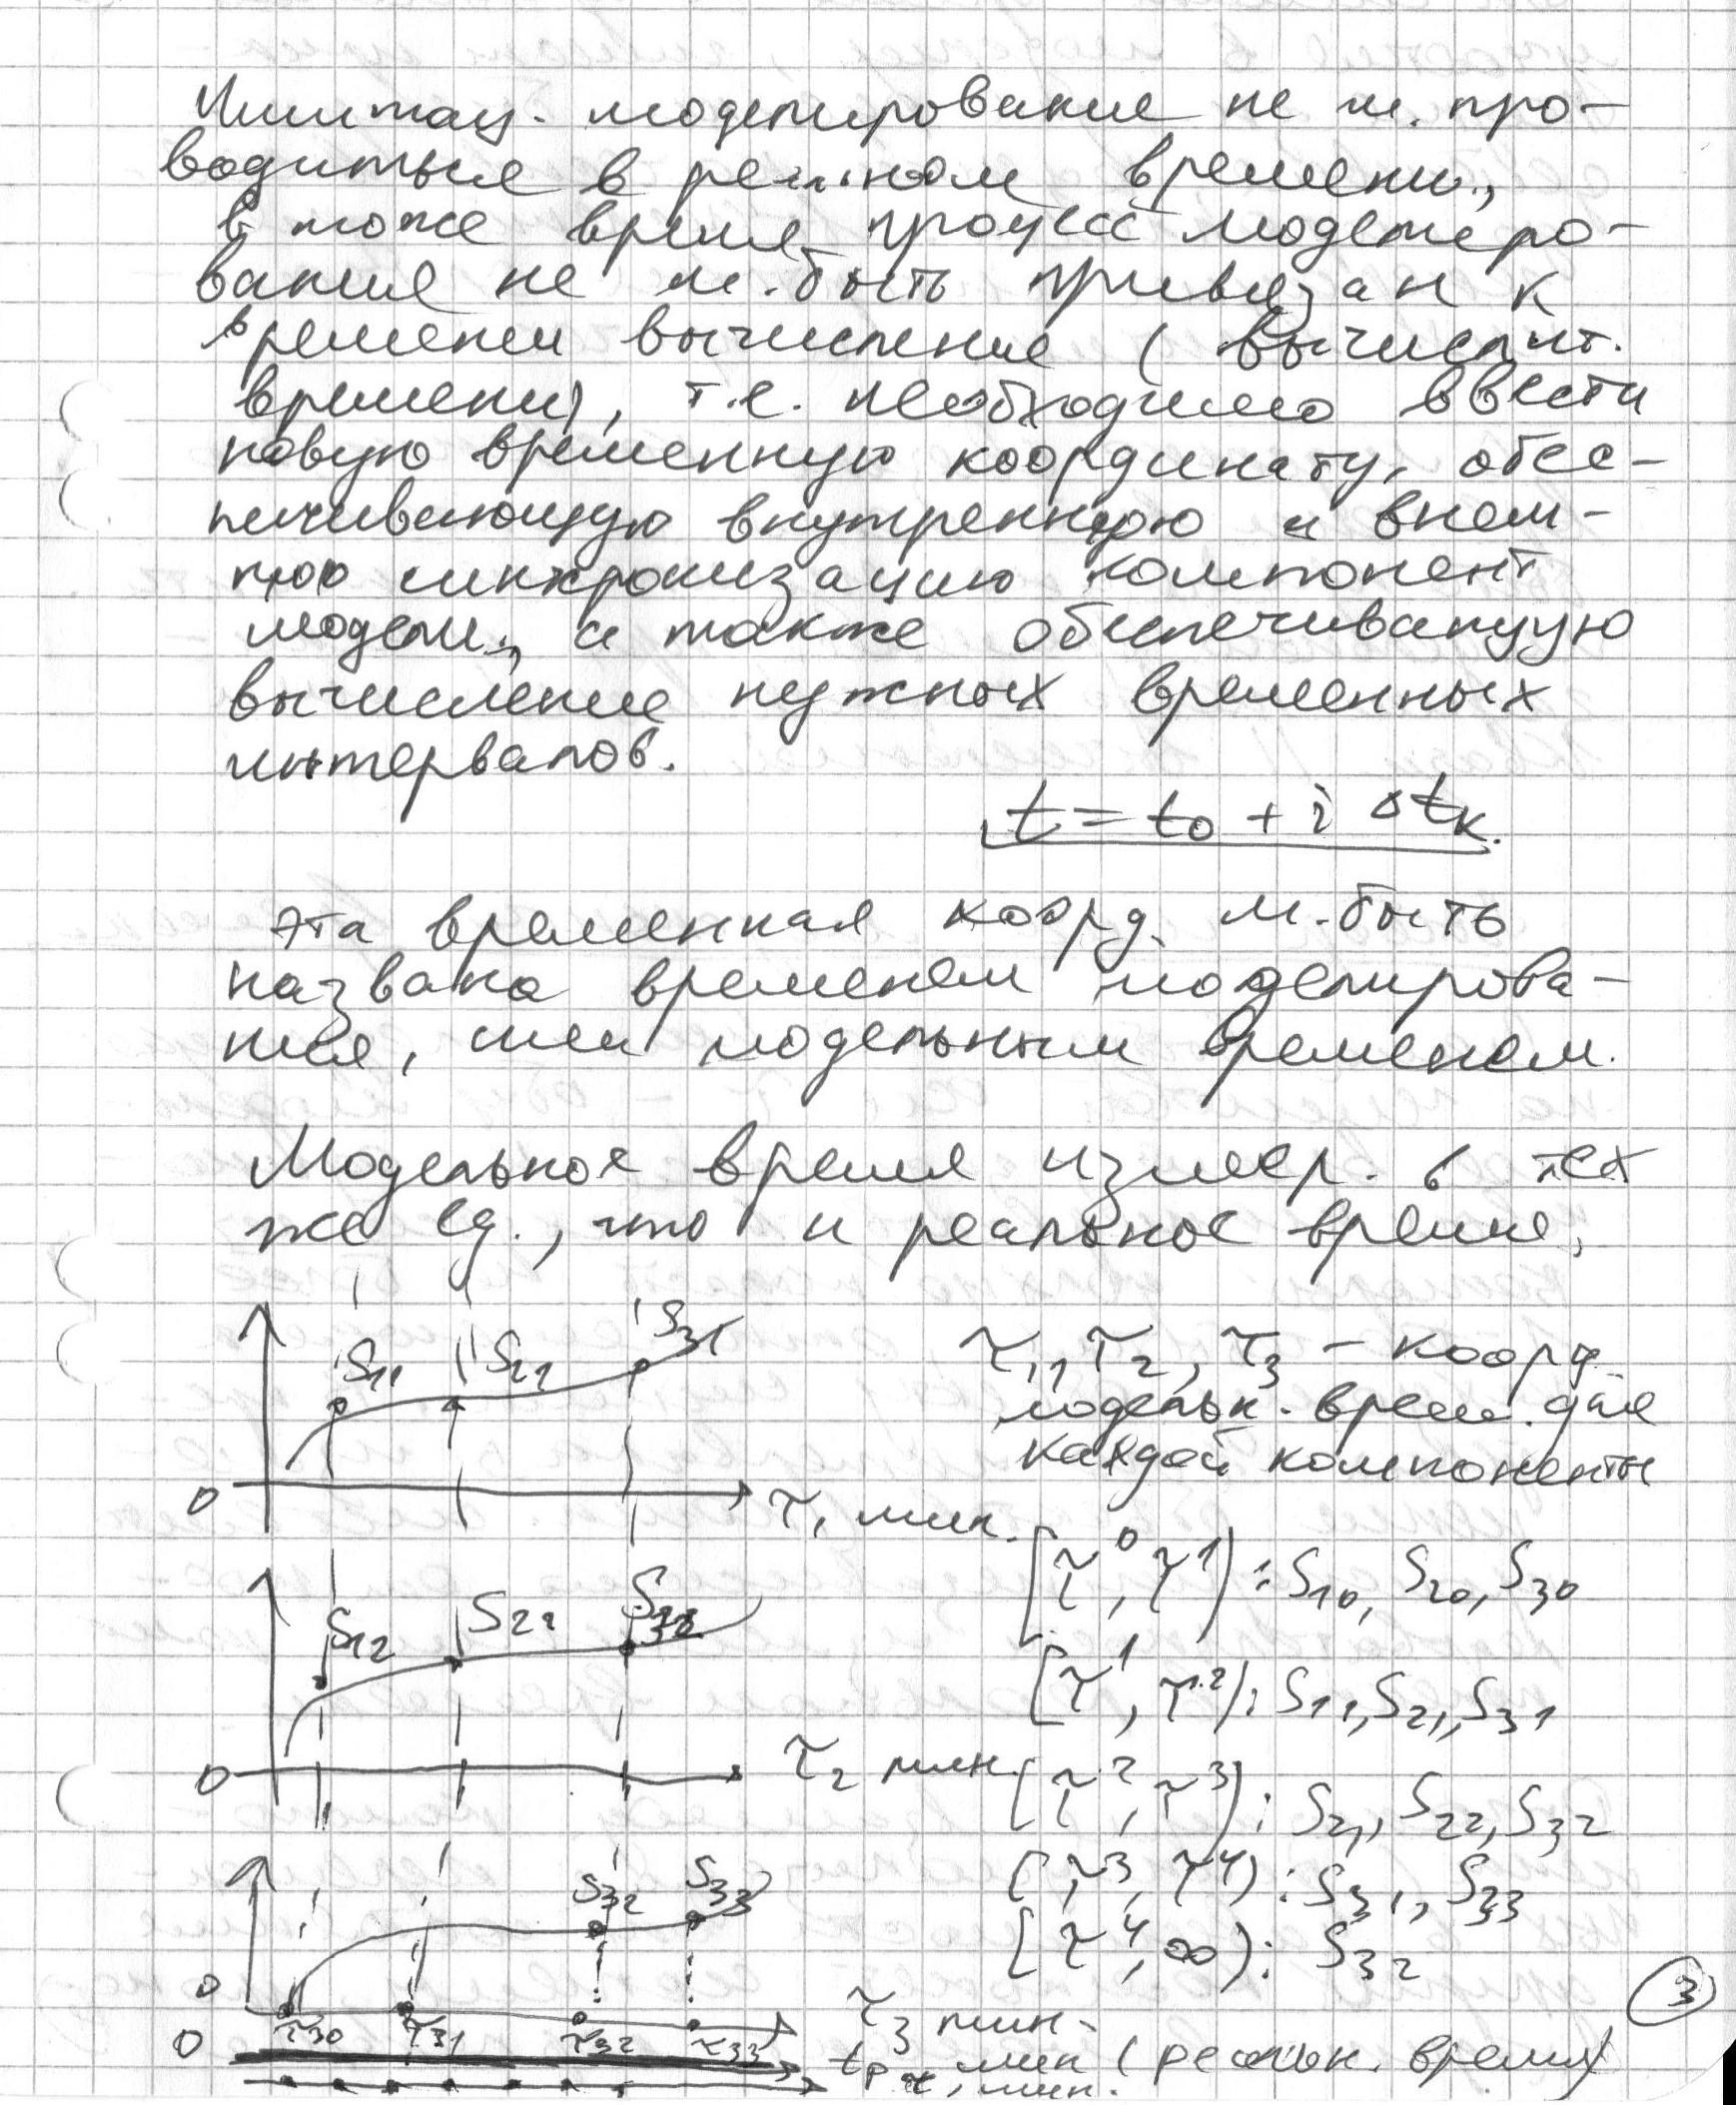 Имитац. моделирование не м. про-
водиться в реальном времени,
в тоже время процесс моделиро-
вания не м. быть привязан к
времени вычисления (вычислит.
времени), т.е. необходимо ввести
новую временную координату, обес-
печивающую внутреннюю и внеш-
нюю синхронизацию компонент
модели, а также обеспечивающую
вычисление нужных временных
интервалов.
t = t0 + i Δtк.
Эта временная коорд. м. быть
названа временем моделирова-
ния, или модельным временем.
Модельное время измер. в тех
же ед., что и реальное время.
S11 S21 S31
0
τ1 мин.
S12 S22 S32
0
τ2 мин
S32 S33
0
τ30 τ31 τ32 τ33
τ3 мин.
0
tр, мин (реальн. время)
τ, мин.
τ1, τ2, τ3 – коорд.
модельн. врем. для
каждой компоненты
[τ⁰, τ¹): S10, S20, S30
[τ¹, τ²): S11, S21, S31
[τ², τ³): S21, S22, S32
[τ³, τ⁴): S31, S33
[τ⁴, ∞): S32
3